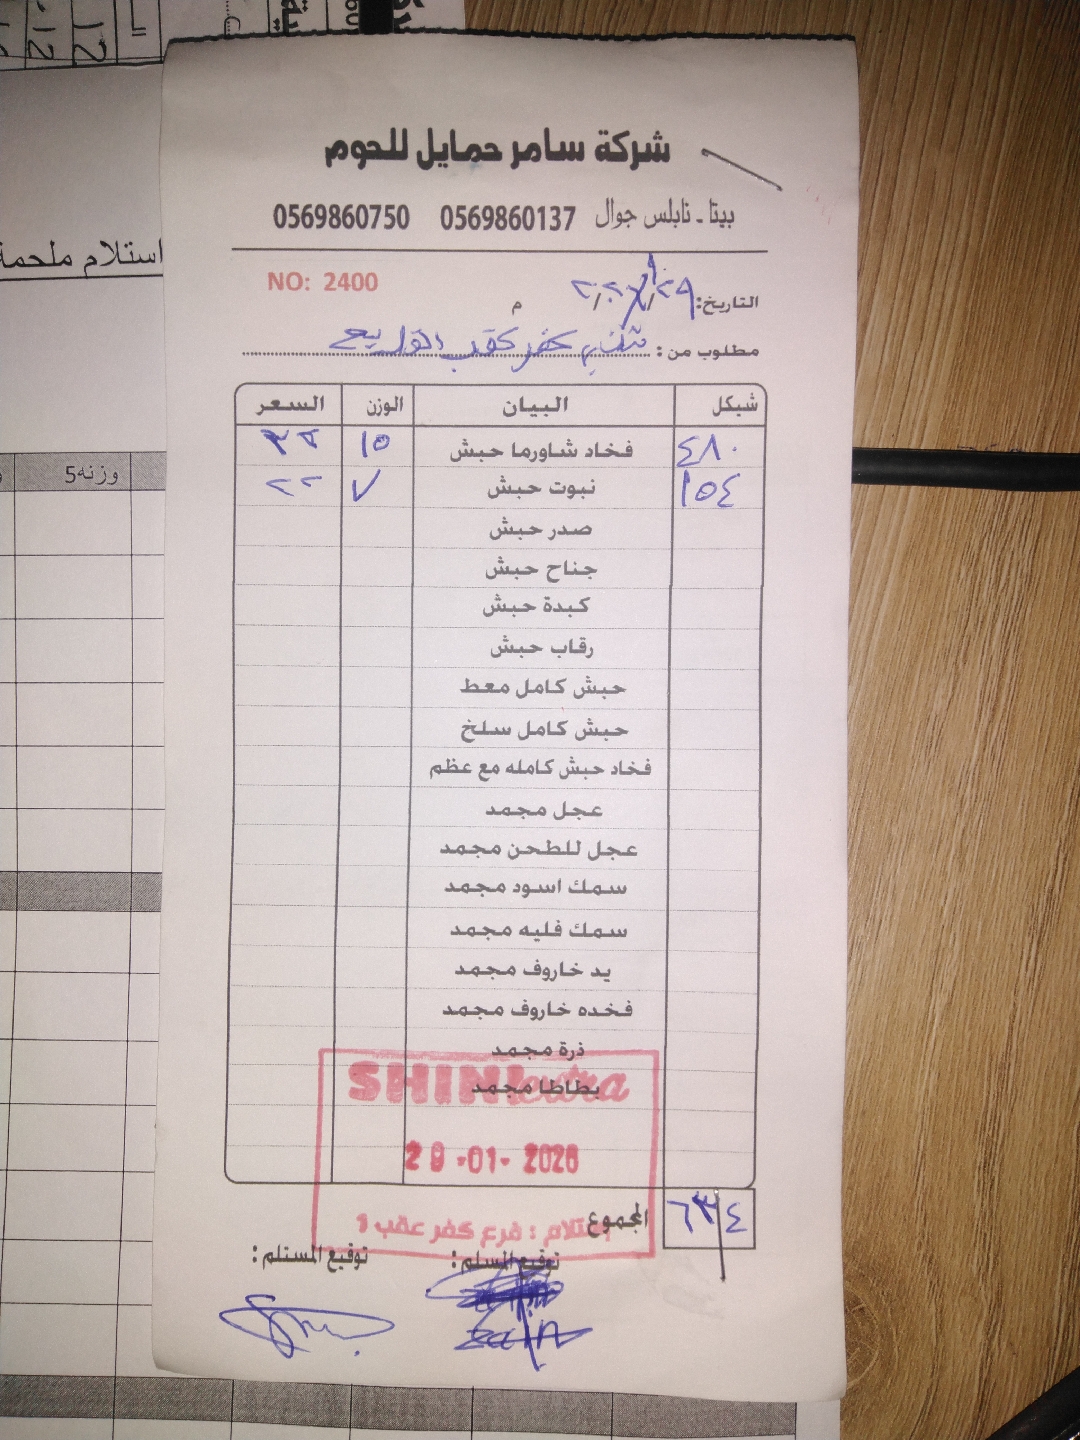 شركة سامر حمايل للحوم
بيتا - نابلس جوال 0569860137 0569860750
NO: 2400
التاريخ: ٢٩/١/٢٠٢٦ م
مطلوب من: شني كفر عقب
شيكل البيان الوزن السعر
٤٨٠ فخاد شاورما حبش ١٥ ٣٢
١٥٤ نبوت حبش ٧ ٢٢
صدر حبش
جناح حبش
كبدة حبش
رقاب حبش
حبش كامل معط
حبش كامل سلخ
فخاد حبش كامله مع عظم
عجل مجمد
عجل للطحن مجمد
سمك اسود مجمد
سمك فليه مجمد
يد خاروف مجمد
فخده خاروف مجمد
ذرة مجمد
بطاطا مجمد
SHINI extra
29-01-2026
استلام : فرع كفر عقب 1
المجموع ٦٣٤
توقيع المسلم: توقيع المستلم:
استلام ملحمة
وزنه5